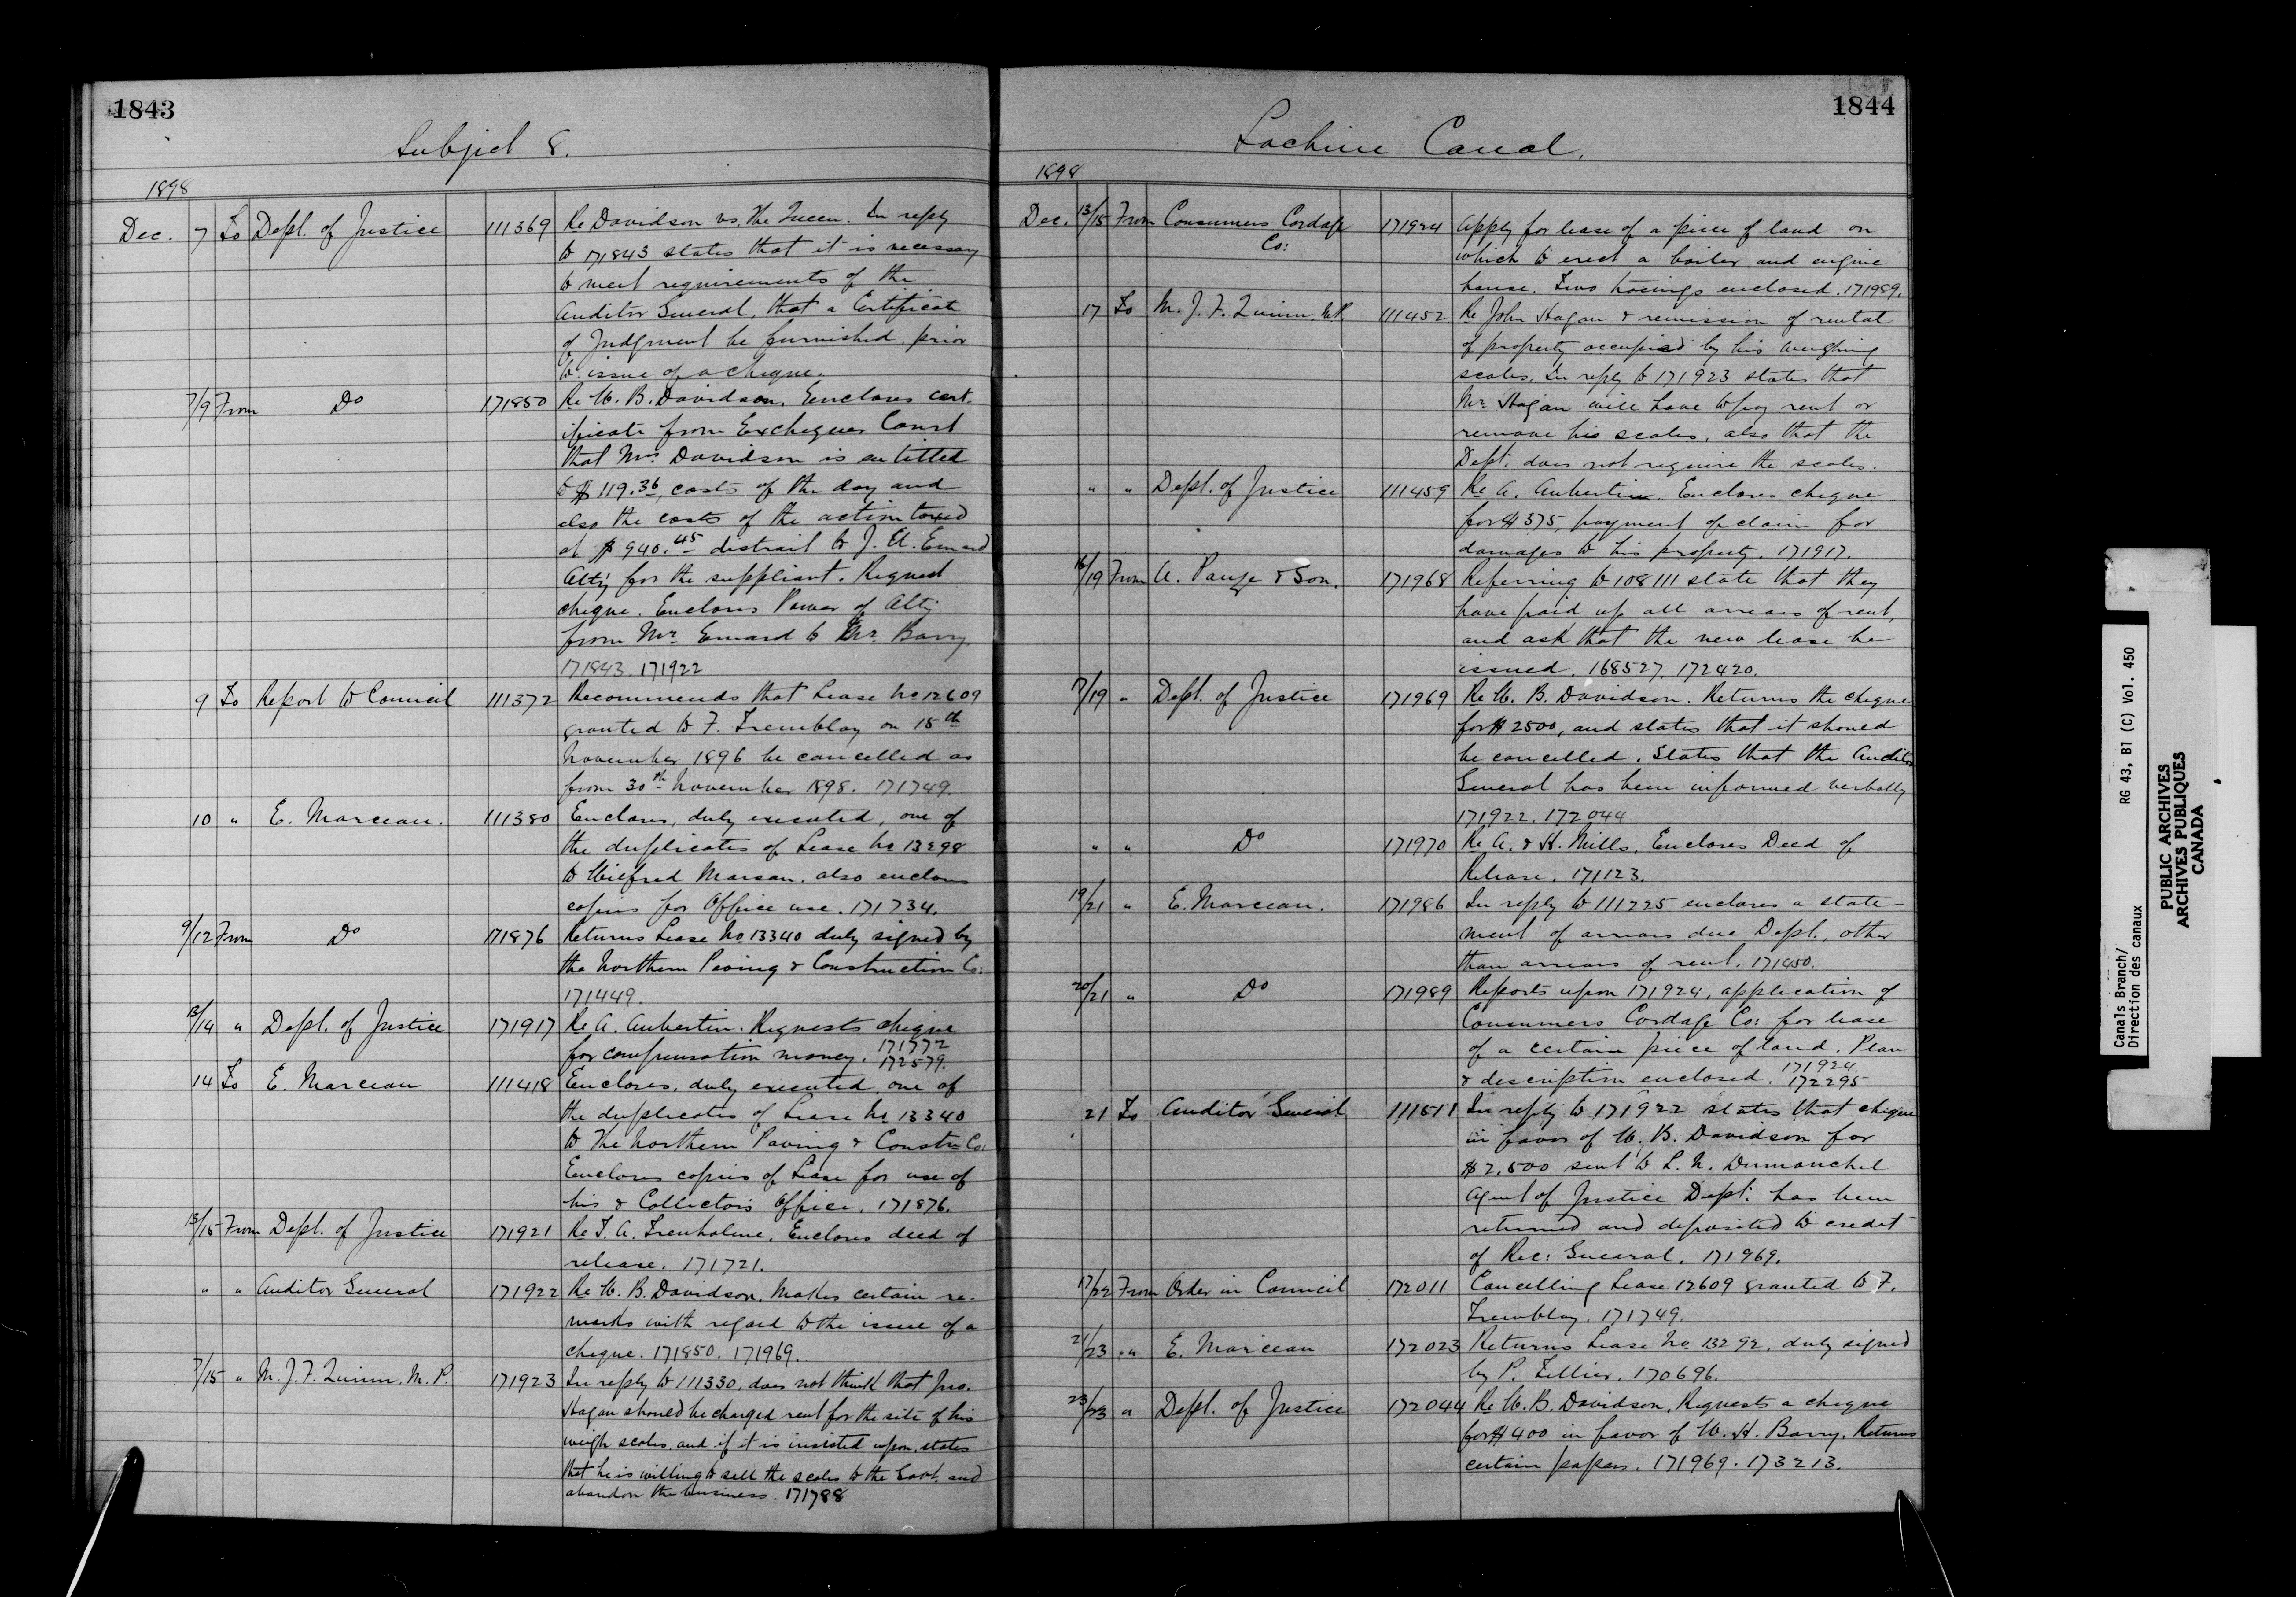 1843
Subject 8.
1898
Dec. 7 To Dept. of Justice 111369 Re Davidson vs. The Queen. In reply
to 171843 states that it is necessary
to meet requirements of the
Auditor General, that a Certificate
of Judgment be furnished prior
to issue of a cheque.
7/9 From Do 171850 Re W. B. Davidson. Encloses cert-
ificate from Exchequer Court
that Mrs Davidson is entitled
to $119.36, costs of the day and
also the costs of the action taxed
at $940.45 distrait to J. U. Emard
Atty for the suppliant. Request
cheque. Encloses Power of Atty
from Mr. Emard to Mr. Barry
171843. 171922
9 To Report to Council 111372 Recommends that Lease No 12609
granted to F. Tremblay on 15th
November 1896 be cancelled as
from 30th November 1898. 171749.
10 " E. Marceau. 111380 Encloses, duly executed, one of
the duplicates of Lease No 13298
to Wilfred Marsan. also encloses
copies for Office use. 171734.
9/12 From Do 171876 Returns Lease No. 13340 duly signed by
the Northern Paving & Construction Co:
171449.
13/14 " Dept. of Justice 171917 Re A. Aubertin. Requests cheque
for compensation money. 171772
172579.
14 To E. Marceau 111418 Encloses, duly executed one of
the duplicates of Lease No 13340
to The Northern Paving & Constn Co:
Encloses copies of Lease for use of
his & Collectors Office. 171876.
13/15 From Dept. of Justice 171921 Re T. A. Trenholme. Encloses deed of
release. 171721.
" " Auditor General 171922 Re W. B. Davidson. Makes certain re-
marks with regard to the issue of a
cheque. 171850. 171969.
7/15 " M. J. F. Quinn. M. P. 171923 In reply to 111330, does not think that Jno.
Hagan should be charged rent for the site of his
weigh scales, and if it is insisted upon, states
that he is willing to sell the scales to the Govt. and
abandon the business. 171788
1844
Lachine Canal.
1898
Dec. 13/15 From Consumers Cordage 171924 Apply for lease of a piece of land on
Co: which to erect a boiler and engine
house. Two tracings enclosed. 171989.
17 To M. J. F. Quinn. M.P. 111452 Re John Hagan & remission of rental
of property occupied by his weighing
scales. In reply to 171923 states that
Mr Hagan will have to pay rent or
remove his scales, also that the
Dept. does not require the scales.
" " Dept. of Justice 111459 Re A. Aubertin. Encloses cheque
for $375, payment of claim for
damages to his property. 171917.
16/19 From A. Pauze & Son. 171968 Referring to 108111 state that they
have paid up all arrears of rent,
and ask that the new lease be
issued. 168527. 172420.
17/19 " Dept. of Justice 171969 Re W. B. Davidson. Returns the cheque
for $2500, and states that it should
be cancelled. States that the Auditor
General has been informed verbally
171922. 172044
" " Do 171970 Re A. & H. Mills. Encloses Deed of
Release. 171123.
19/21 " E. Marceau. 171986 In reply to 111225 encloses a state-
ment of arrears due Dept., other
than arrears of rent. 171450.
20/21 " Do 171989 Reports upon 171924, application of
Consumers Cordage Co: for lease
of a certain piece of land. Plan
& description enclosed. 171924.
172295
21 To Auditor General 111511 In reply to 171922 states that cheque
in favor of W. B. Davidson for
$2,500 sent to L. N. Dumouchel
Agent of Justice Dept. has been
returned and deposited to credit
of Rec: General. 171969.
17/22 From Order in Council 172011 Cancelling Lease 12609 granted to F.
Tremblay. 171749.
21/23 " " E. Marceau 172023 Returns Lease No 13292, duly signed
by P. Tellier. 170696.
23/23 " Dept. of Justice 172044 Re W. B. Davidson. Requests a cheque
for $400 in favor of W. H. Barry. Returns
certain papers. 171969. 173213.
Canals Branch/
Direction des canaux
RG 43, B1 (C) Vol. 450
PUBLIC ARCHIVES
ARCHIVES PUBLIQUES
CANADA